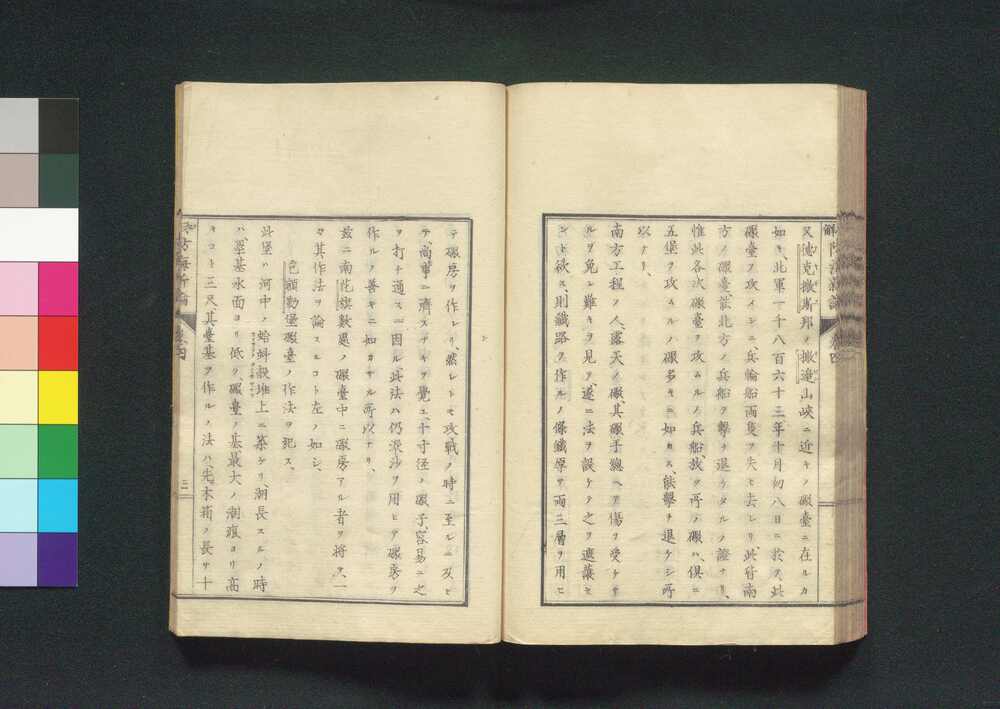 又德克撒斯邦ノ撒邉山峽ニ近キノ礮臺ニ在ルカ
如キ、北軍一千八百六十三年十月初八日ニ於テ、此
礮臺ヲ攻メシニ、兵輪船兩隻ヲ失ヒ去レリ、此皆南
方ノ礮臺、能北方ノ兵船ヲ擊チ退ケタルノ證ナリ、
惟此各次礮臺ヲ攻ムルノ兵船、載ヲ所ノ礮ハ、俱ニ
五堡ヲ攻ムルノ礮多キニ如カス、能擊チ退ケシ所
以ナリ、
南方工程ノ人、露天ノ礮、其礮手總ヘテ傷ヲ受ケサ
ルヲ免レ難キヲ見テ、遂ニ法ヲ設ケテ之ヲ遮蔽セ
ント欲ス、則鐵路ヲ作ルノ條鐵厚ヲ兩三層ヲ用ヒ
テ礮房ヲ作レリ、然レトモ攻戰ノ時ニ至ルニ及ヒ
テ、尚事ニ濟ス
十寸徑ノ礮子、容易ニ之
ヲ打チ通ス
因ル此法ハ仍泥沙ヲ用ヒテ礮房ヲ
作ルノ善キニ如カサル所以ナリ、
茲ニ南花旗數處ノ礮臺中ニ礮房アル者ヲ將テ、一
々其作法ヲ論スルコト左ノ如シ、
色額勒堡礮臺ノ作法ヲ記ス、
此堡ハ河中ノ蛤蚪殼堆上ニ築ケリ、潮長スルノ時
ハ、墓基水面ヨリ低ク、礮臺ノ基最大ノ潮痕ヨリ高
キコト三尺、其臺基ヲ作ルノ法ハ、先木箱ノ長サ十
卷四
二